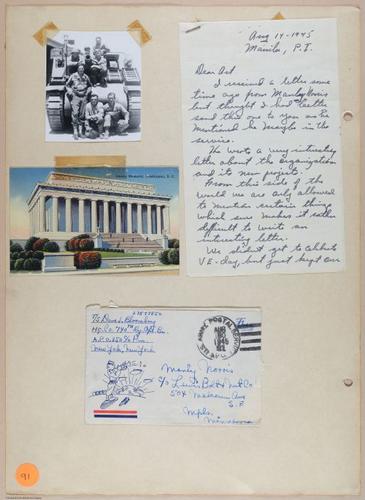 Aug 14-1945
Manila, P.I.
Dear Art
I received a letter some
time ago from Manley Norris
but thought I had better
send this one to you as he
mentioned he might be in the
service.
He wrote a very interesting
letter about the organization
and its new projects.
From this side of the
world we are only allowed
to mention certain things
which sure makes it rather
difficult to write an
interesting letter.
We didn't get to celebrate
V-E-day, but just kept our
Lincoln Memorial, Washington, D.C.
New York, New York
U.S. ARMY POSTAL SERVICE
A.P.O.
AUG
1945
Free
Manly Norris
504
S.E.
Mpls.
Minnesota
91